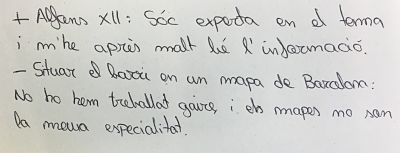 + Alfons XII: Sóc experta en el tema
i m'he après molt bé l'informació.
- Situar el barri en un mapa de Barcelona:
No ho hem treballat gaire, i els mapes no son
la meva especialitat.